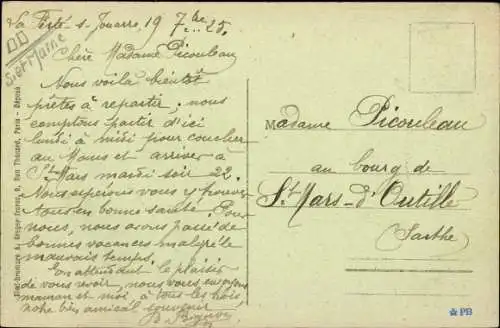 La Ferté-s-Jouarre, 19 7bre 25.
Chère Madame Picouleau
Nous voilà bientôt
prêtes à repartir. nous
comptons partir d'ici
lundi à midi pour coucher
au Mans et arriver à
St Mars mardi soir 22.
Nous espérons vous y trouver
tous en bonne santé. Pour
nous, nous avons passé de
bonnes vacances malgré le
mauvais temps.
En attendant le plaisir
de vous revoir, nous vous envoyons
maman et moi à tous les trois
notre bien amical souvenir
Seine et Marne
Madame Picouleau
au bourg de
St Mars-d'Outillé
(Sarthe)
Rue Thénard, Paris - Déposé
PB